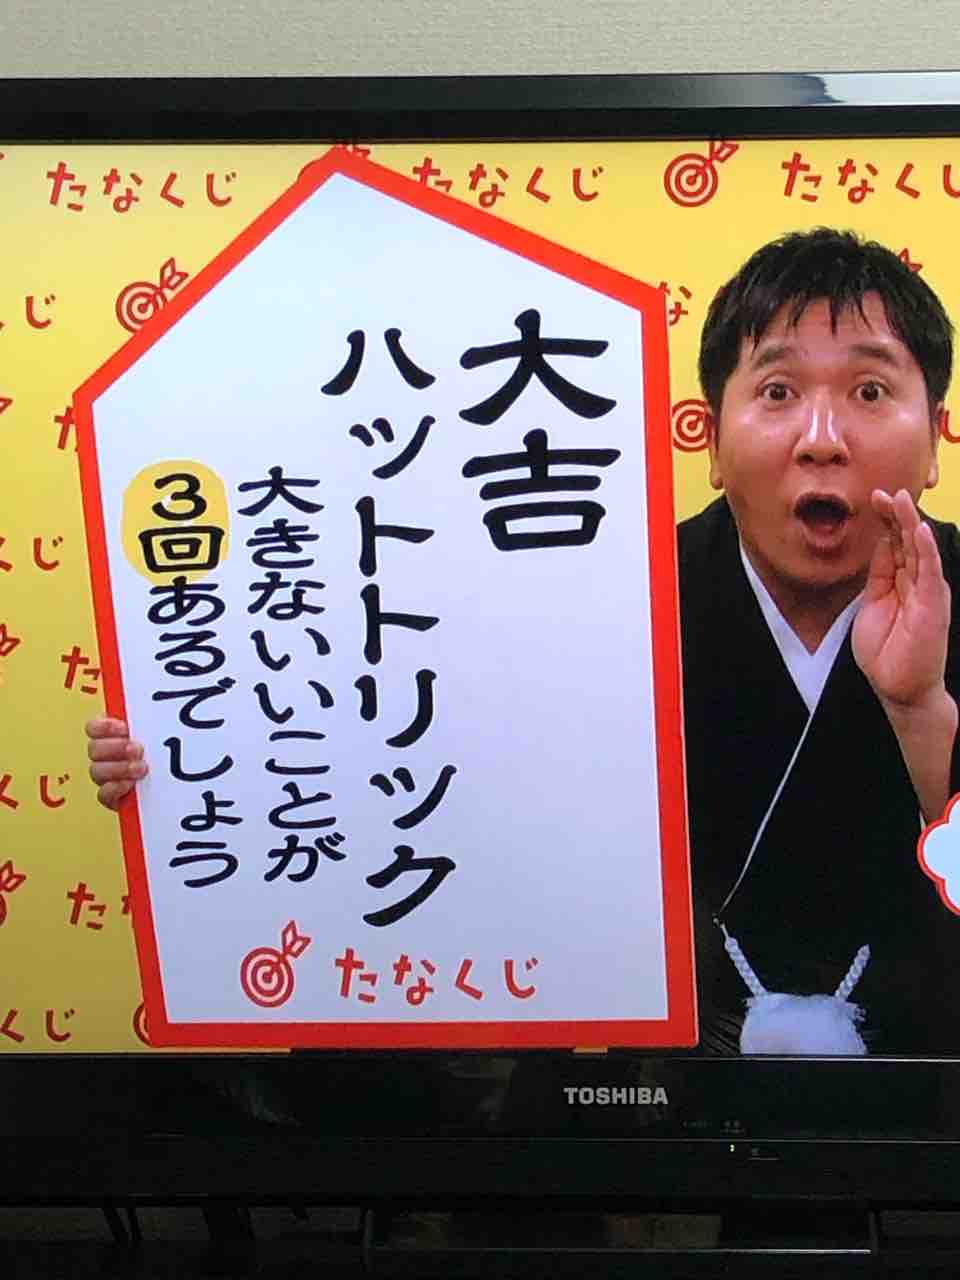 たなくじ
たなくじ
たなく
くじ
な
た
くじ
た
くじ
た
くじ
大吉
ハットトリック
大きないいことが
3回あるでしょう
たなくじ
TOSHIBA